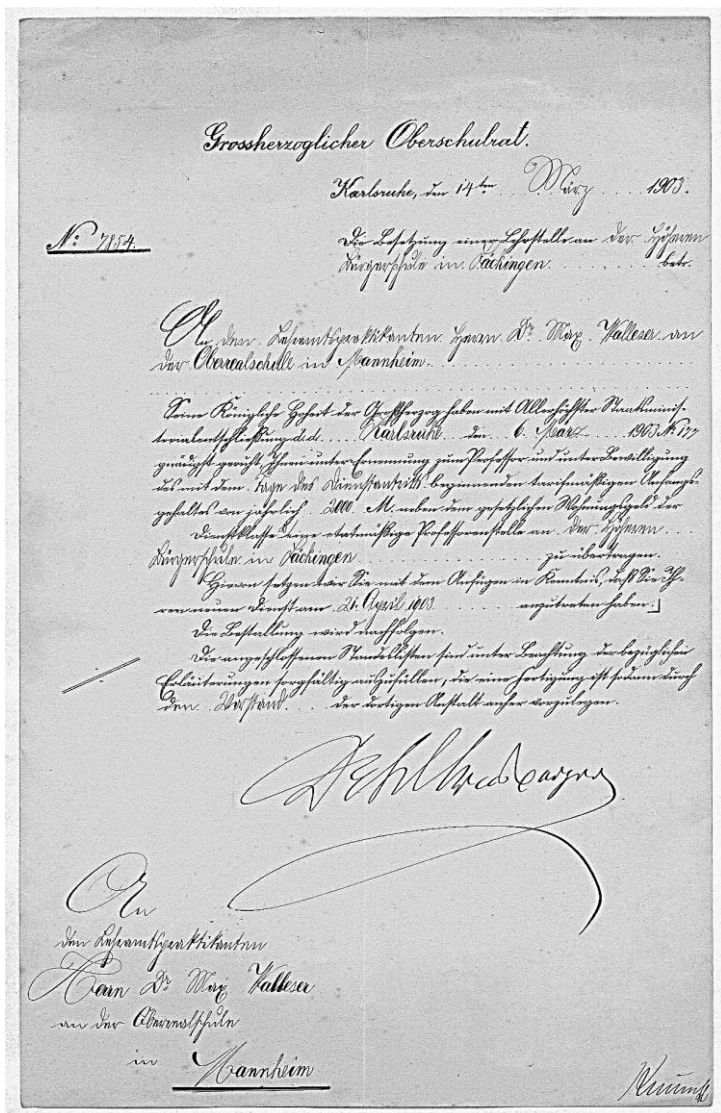 Grossherzoglicher Oberschulrat.
Karlsruhe, den 14ten März 1903.
No. 7854.
Die Besetzung einer Lehrstelle an der Höheren
Bürgerschule in Säckingen betr.
An den Lehramtspraktikanten Herrn Dr. Max Walleser an
der Oberrealschule in Mannheim.
Seine Königliche Hoheit der Großherzog haben mit Allerhöchster Staatsminis-
terialentschließung d.d. Karlsruhe den 6. März 1903 No. 177
gnädigst geruht, Ihnen unter Ernennung zum Professor und unter Bewilligung
des mit dem Tage des Dienstantritts beginnenden tarifmäßigen Anfangs-
gehaltes von jährlich 2000 M. neben dem gesetzlichen Wohnungsgeld der
Dienstklasse eine etatmäßige Professorenstelle an der Höheren
Bürgerschule in Säckingen zu übertragen.
Hievon setzen wir Sie mit dem Anfügen in Kenntnis, daß Sie Ih-
ren neuen Dienst am 21. April 1903 anzutreten haben.
Die Bestallung wird nachfolgen.
Die angeschlossenen Standeslisten sind unter Beachtung der bezüglichen
Erläuterungen sorgfältig auszufüllen, die eine Fertigung ist sodann durch
den Vorstand der dortigen Anstalt anher vorzulegen.
An
den Lehramtspraktikanten
Herrn Dr. Max Walleser
an der Oberrealschule
in Mannheim